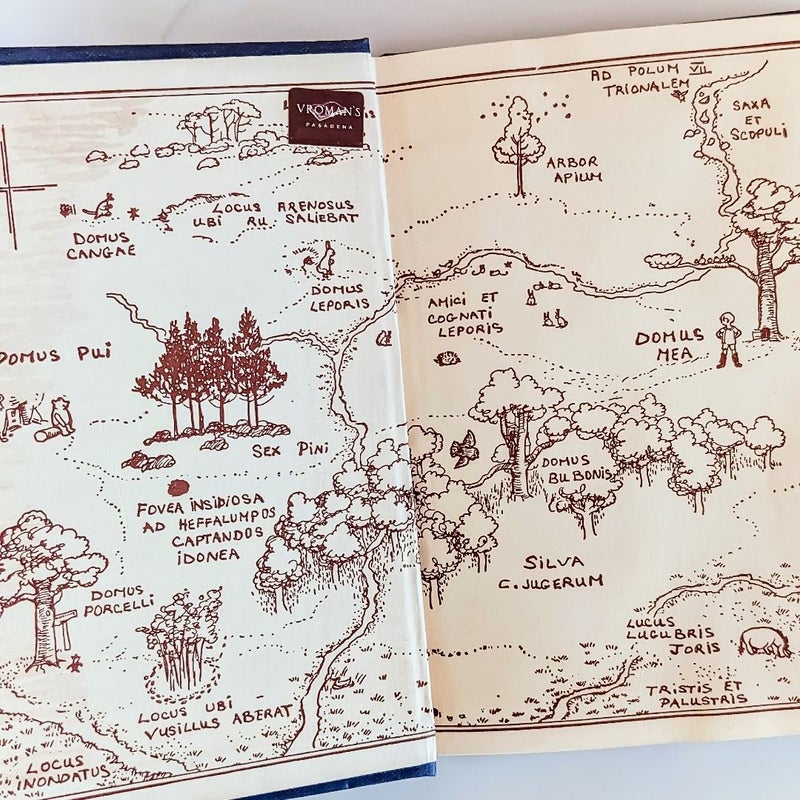 VROMAN'S
PASADENA
LOCUS ARENOSUS
UBI RU SALIEBAT
DOMUS
CANGAE
DOMUS
LEPORIS
DOMUS PUI
SEX PINI
FOVEA INSIDIOSA
AD HEFFALUMPOS
CAPTANDOS
IDONEA
DOMUS
PORCELLI
LOCUS UBI
VUSILLUS ABERAT
LOCUS
INONDATUS
AD POLUM VII
TRIONALEM
SAXA
ET
SCOPULI
ARBOR
APIUM
AMICI ET
COGNATI
LEPORIS
DOMUS
MEA
DOMUS
BUBONIS
SILVA
C. JUGERUM
LUCUS
LUGUBRIS
JORIS
TRISTIS ET
PALUSTRIS